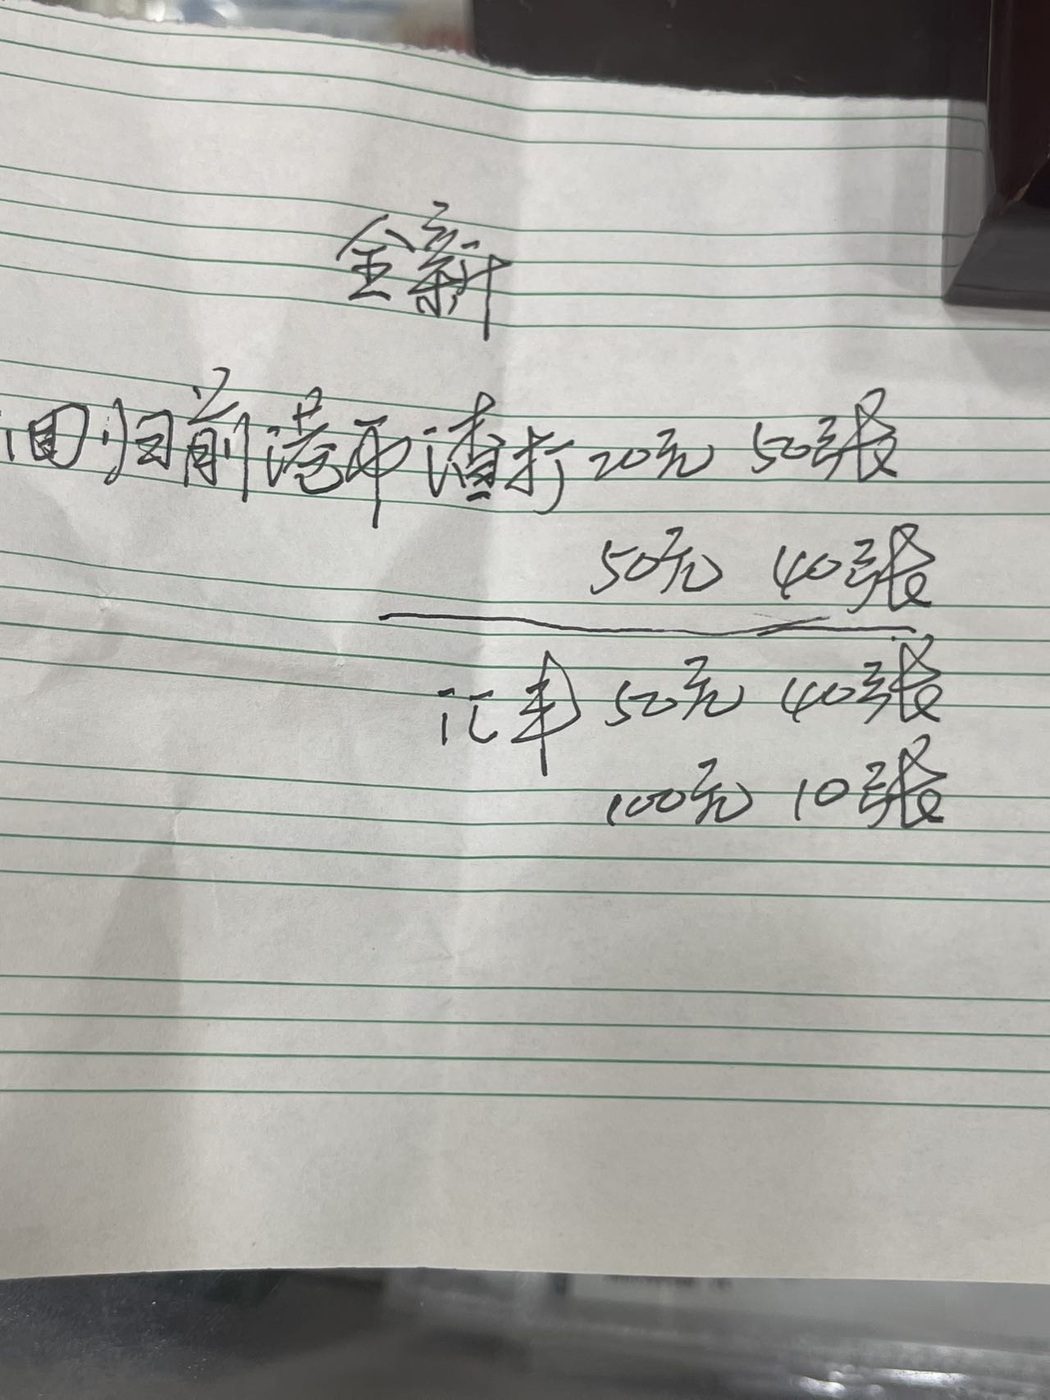 全新
回归前港币渣打20元 50张
50元 40张
汇丰50元 40张
100元 10张